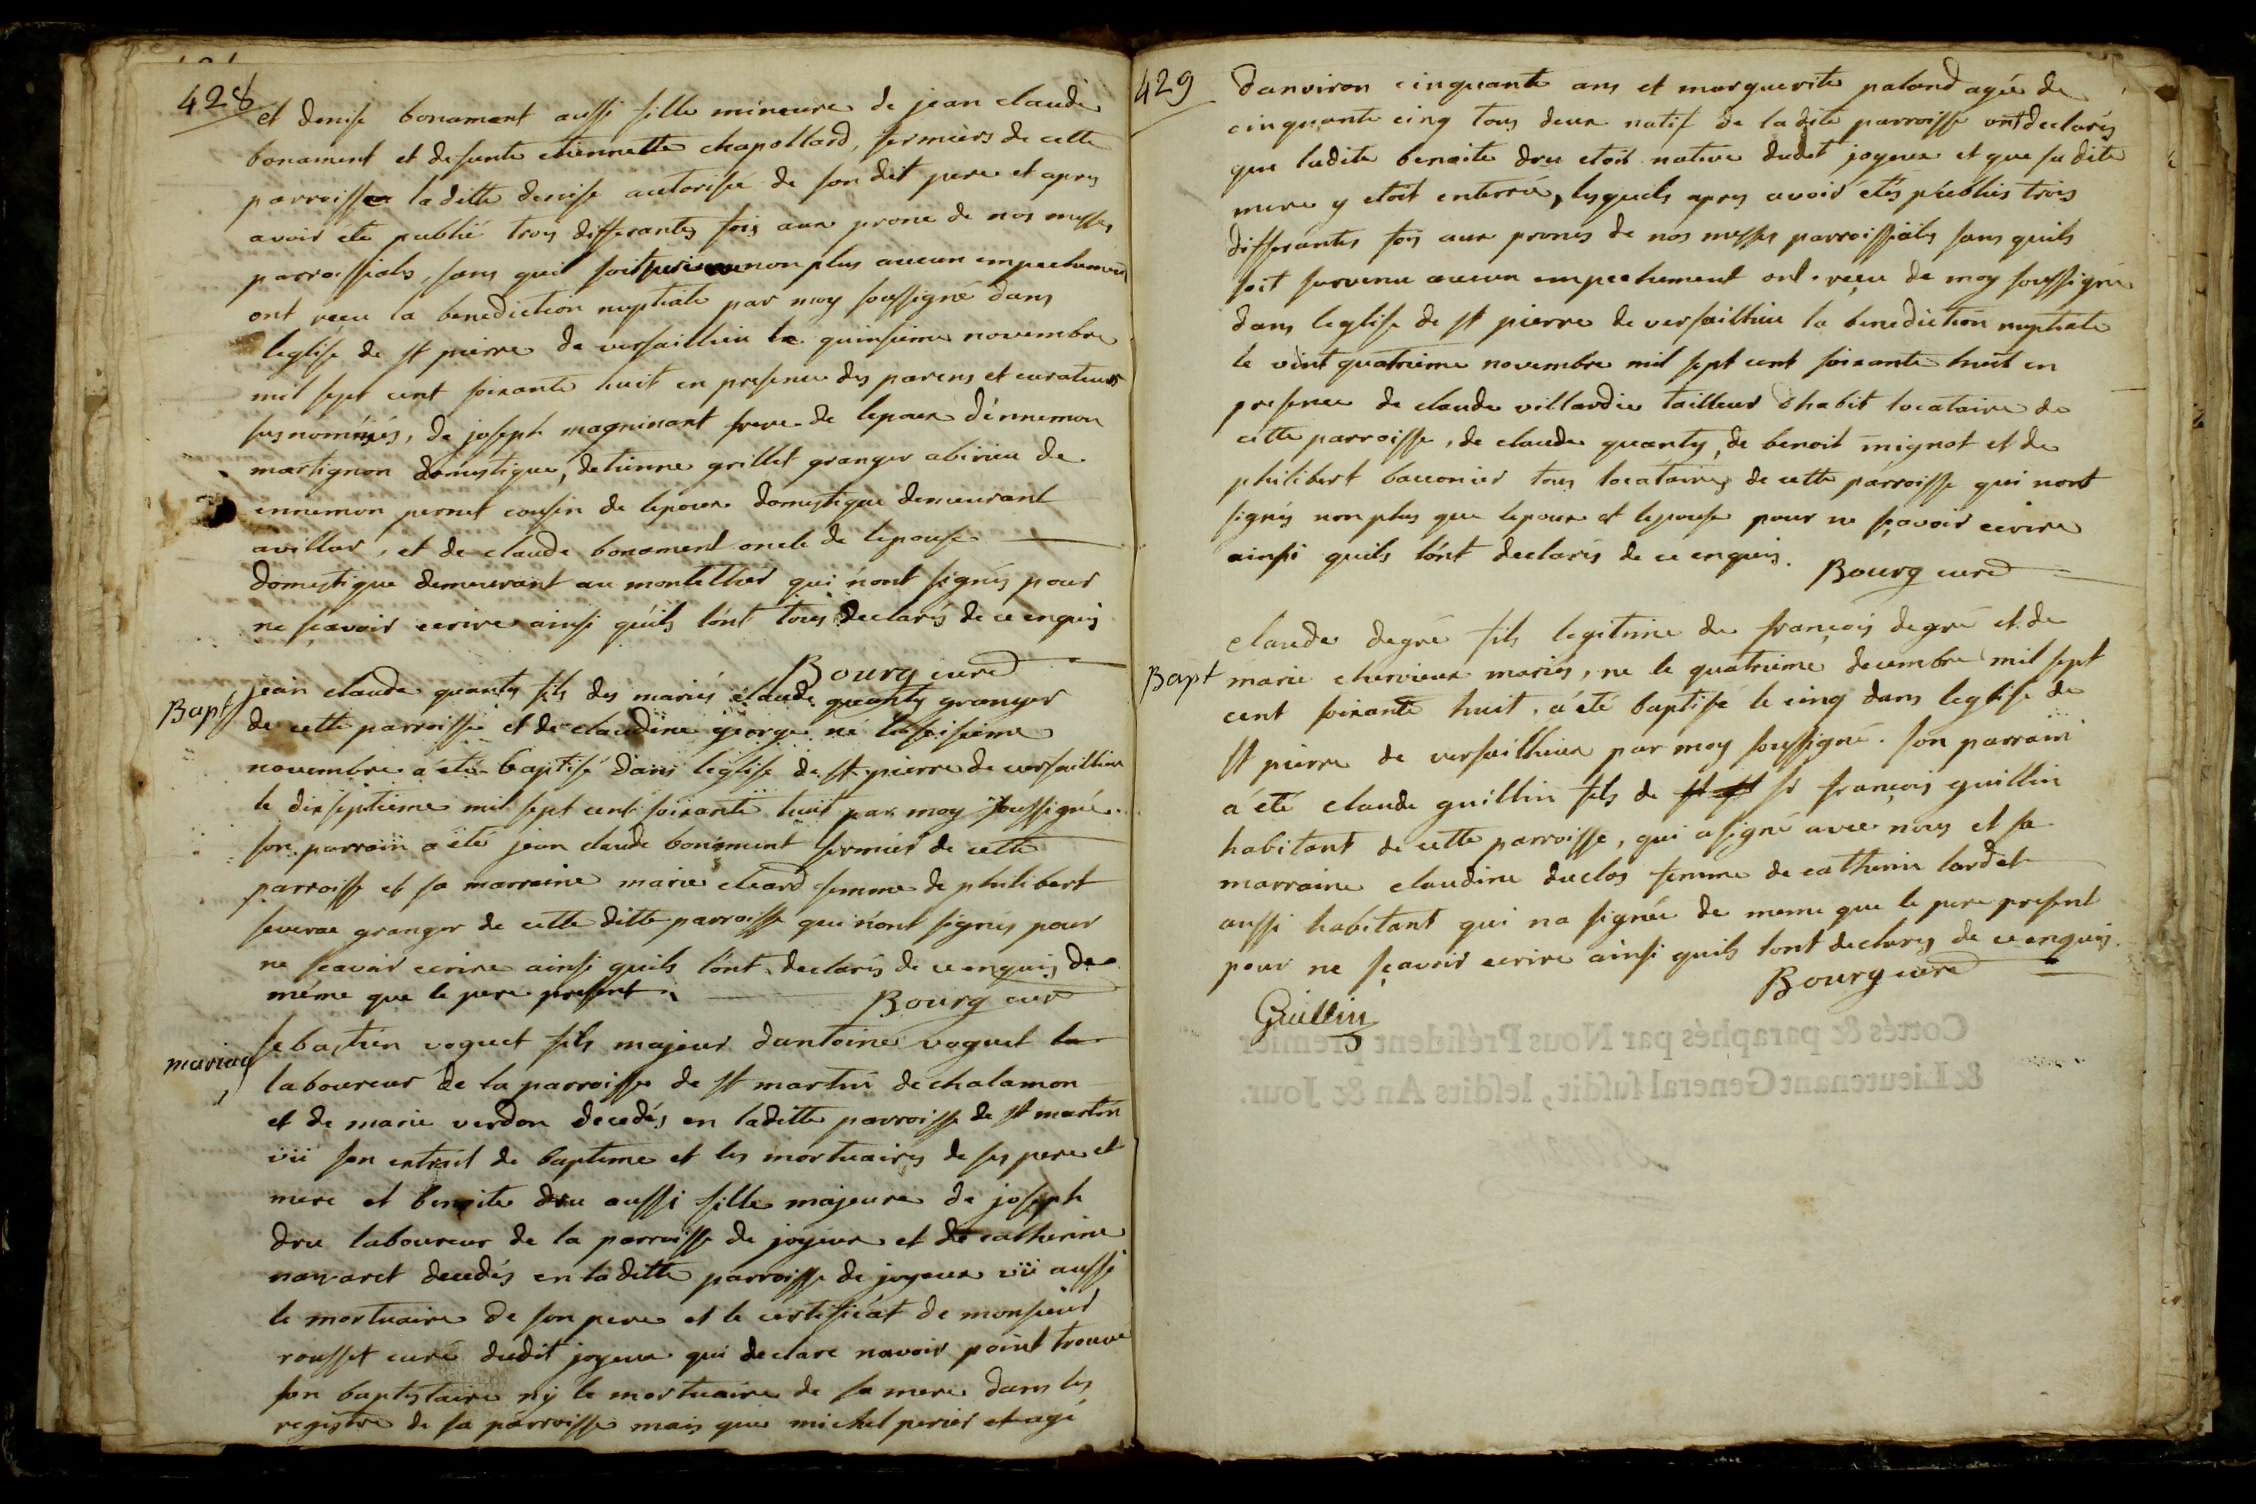 428
et denise bonament aussi fille mineure de jean claude
bonament et defunte etiennette chapollard, fermiers de cette
parroisse laditte denise autorisée de son dit pere et apres
avoir été publié trois differantes fois aux prone de nos messes
parroissials, sans quil soit non plus aucun empechement
ont reçu la benediction nuptiale par moy soussigné dans
leglise de st pierre de versaillieu le quinsieme novembre
mil sept cent soixante huit en presence des parens et curateurs
susnommés, de joseph magninant frere de lepoux d'ennemon
martignon domestique, detienne grillet granger de
ennemon pernet cousin de lepoux domestique demeurant
avillar, et de claude bonament oncle de lepouse
domestique demeurant au montellier qui n'ont signés pour
ne sçavoir ecrire ainsi qúils lónt tous declarés de ce enquis
Bourg curé
Bapt
jean claude quanty fils des mariés claude quanty granger
de cette parroisse et de claudine george né le seisieme
novembre a été baptisé dans leglise de st pierre de versaillieu
le dixseptieme mil sept cent soixante huit par moy soussigné.
son parrain a été jean claude bonament fermier de cette
parroisse et sa marraine marie cleard femme de philibert
severac granger de cette ditte parroisse qui n'ont signés pour
ne sçavoir ecrire ainsi quils lónt declarés de ce enquis de
méme que le pere present.
Bourg curé
mariage
sebastien voguet fils majeur dantoine voguet la
laboureur de la parroisse de st martin de chalamon
et de marie verdon decedés en laditte parroisse de st martin
vü son extrait de bapteme et les mortuaires de ses pere et
mere et benoite dru aussi fille majeure de joseph
dru laboureur de la parroisse de joyeux et de catherine
navaret decedés en laditte parroisse de joyeux vü aussi
le mortuaire de son pere et le certificat de monsieur
rousset curé dudit joyeux qui declare navoir point trouvé
son baptistaire ny le mortuaire de sa mere dans les
registre de sa parroisse mais que michel perier et agé
429
danviron cinquante ans et marguerite paland agée de
cinquante cinq tous deux natif de ladite parroisse ont declarés
que ladite benoite dru etoit native dudit joyeux et que sa dite
mere y etoit enterrée, lesquels apres avoir étés publiés trois
differantes fois aux pronés de nos messes parroissials sans quils
soit survenu aucun empechement ont reçu de moy soussigné
dans leglise de st pierre de versaillieu la benediction nuptiale
le vint quatrieme novembre mil sept cent soixante huit en
presence de claude villardie tailleur dhabit locataire de
cette parroisse, de claude quanty, de benoit mignot et de
philibert bacconier tous locataires de cette parroisse qui nont
signés non plus que lepoux et lepouse pour ne sçavoir ecrire
ainsi quils lónt declarés de ce enquis.
Bourg curé
Bapt
claude degré fils legitime de françois degré et de
marie chervieux mariés, ne le quatrieme decembre mil sept
cent soixante huit, a été baptisé le cinq dans leglise de
st pierre de versaillieux par moy soussigné. son parrain
a été claude guillin fils de sr françois guillin
habitant de cette parroisse, qui a signé avec nous et sa
marraine claudine duclos femme de catherin lardet
aussi habitant qui na signée de meme que le pere present
pour ne sçavoir ecrire ainsi quils lont declarés de ce enquis.
Bourg curé
Guillin
Cottés & paraphés par Nous Président premier
& Lieutenant General susdit, lesdits An & Jour.